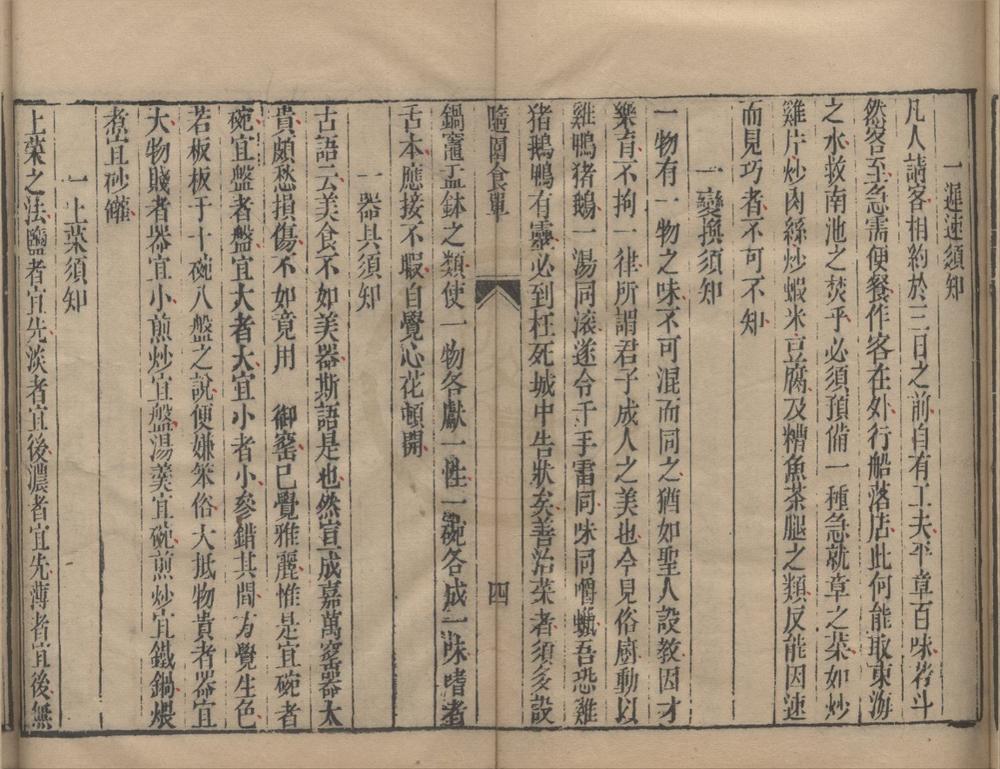 一遲速須知
凡人請客相約於三日之前自有工夫平章百味若斗
然客至急需便餐作客在外行船落店此何能取東海
之水救南池之焚乎必須預備一種急就章之菜如炒
雞片炒肉絲炒蝦米豆腐及糟魚茶腿之類反能因速
而見巧者不可不知
一變換須知
一物有一物之味不可混而同之猶如聖人設教因才
樂育不拘一律所謂君子成人之美也今見俗廚動以
雞鴨猪鵝一湯同滾遂令千手雷同味同嚼蠟吾恐雞
猪鵝鴨有靈必到枉死城中告狀矣善治菜者須多設
隨園食單
四
鍋竈盂鉢之類使一物各獻一性一碗各成一味嗜者
舌本應接不暇自覺心花頓開
一器具須知
古語云美食不如美器斯語是也然宣成嘉萬窰器太
貴頗愁損傷不如竟用 御窰已覺雅麗惟是宜碗者
碗宜盤者盤宜大者大宜小者小參錯其間方覺生色
若板板于十碗八盤之說便嫌笨俗大抵物貴者器宜
大物賤者器宜小煎炒宜盤湯羹宜碗煎炒宜鐵鍋煨
煮宜砂罐
一上菜須知
上菜之法鹽者宜先淡者宜後濃者宜先薄者宜後無